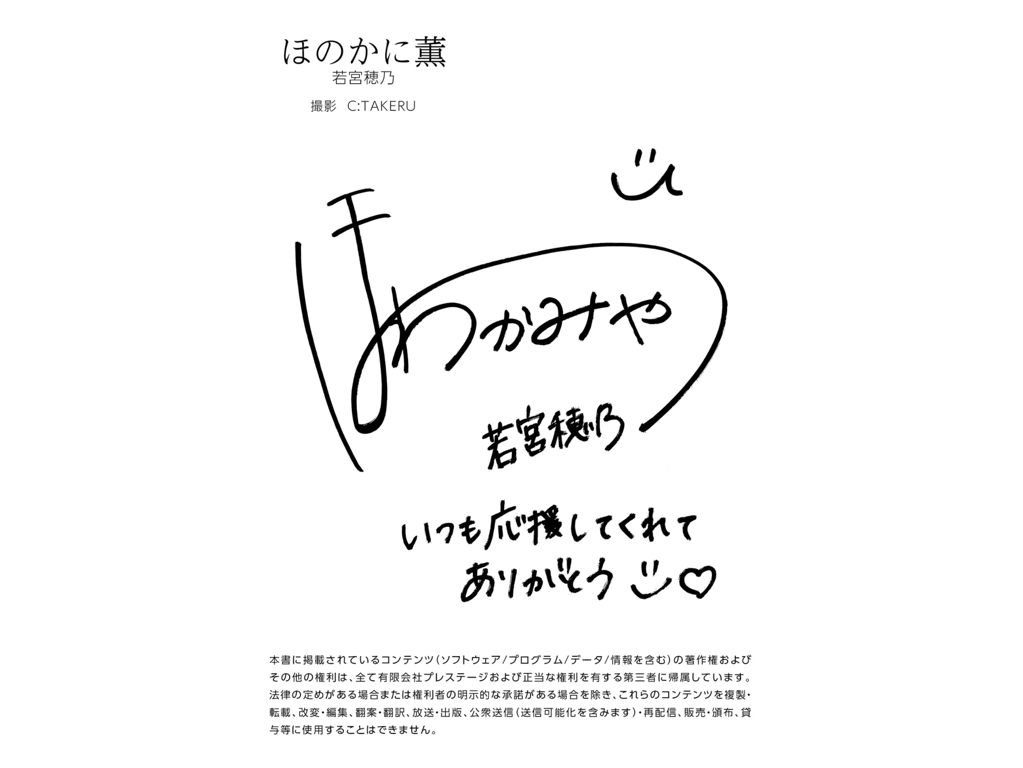 ほのかに薫
若宮穂乃
撮影 C:TAKERU
ほ
わかみや
若宮穂乃
いつも応援してくれて
ありがとう
本書に掲載されているコンテンツ（ソフトウェア/プログラム/データ/情報を含む）の著作権および
その他の権利は、全て有限会社プレステージおよび正当な権利を有する第三者に帰属しています。
法律の定めがある場合または権利者の明示的な承諾がある場合を除き、これらのコンテンツを複製・
転載、改変・編集、翻案・翻訳、放送・出版、公衆送信（送信可能化を含みます）・再配信、販売・頒布、貸
与等に使用することはできません。